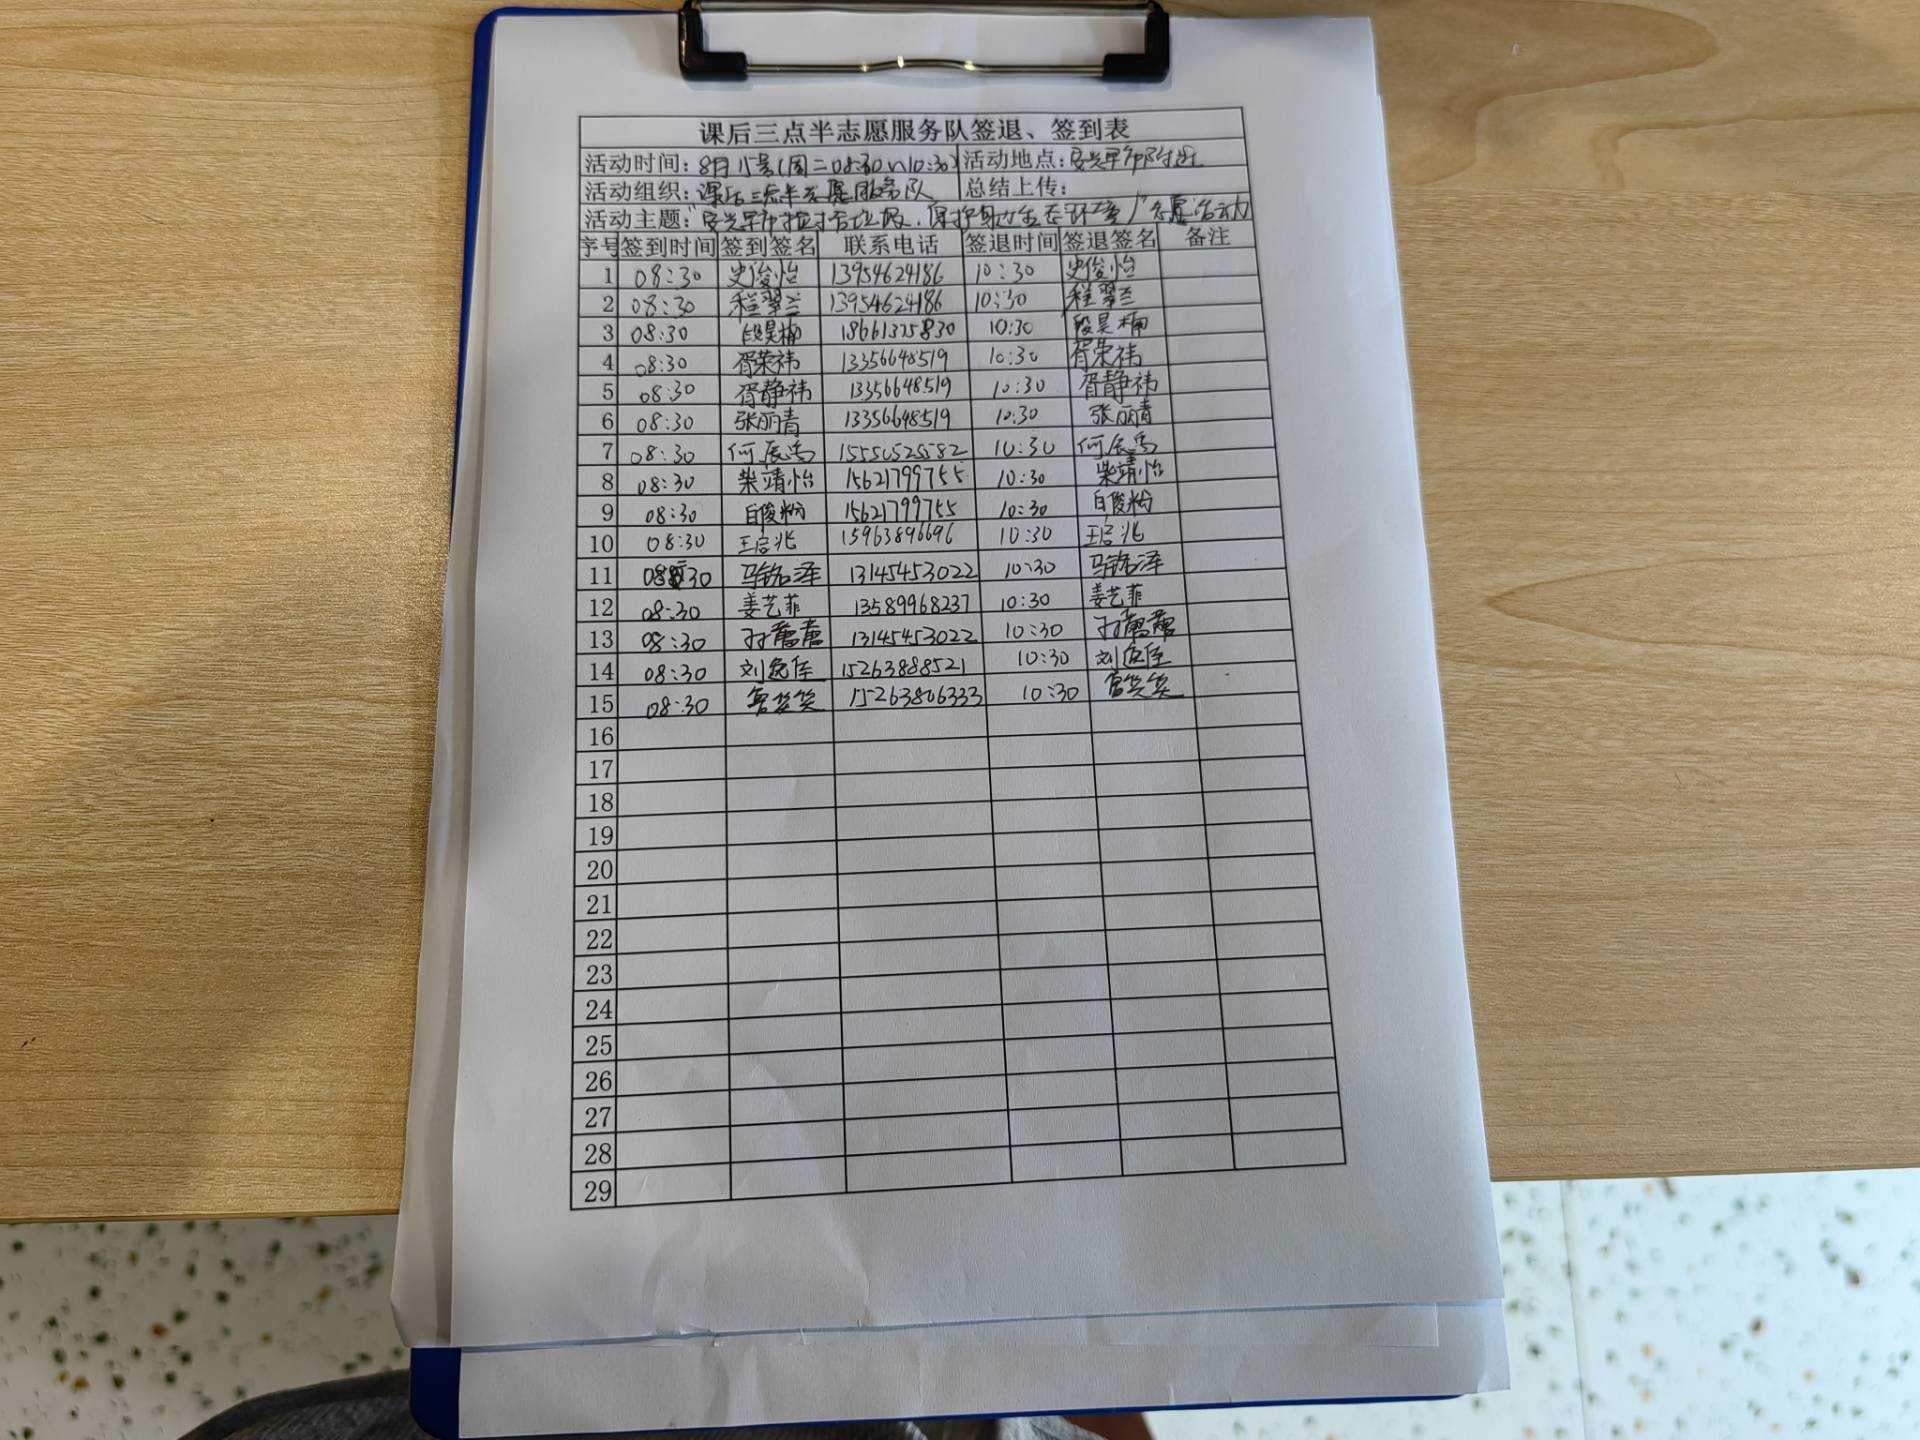 课后三点半志愿服务队签退、签到表
活动时间: 8月15号(周二08:30~10:30) 活动地点:
活动组织: 课后三点半志愿服务队 总结上传:
活动主题: 保护 生态环境 志愿活动
序号 签到时间 签到签名 联系电话 签退时间 签退签名 备注
1 08:30 史俊怡 13954624186 10:30 史俊怡
2 08:30 程翠兰 13954624186 10:30 程翠兰
3 08:30 段昊楠 18661325830 10:30 段昊楠
4 08:30 胥荣祎 13356648519 10:30 胥荣祎
5 08:30 胥静祎 13356648519 10:30 胥静祎
6 08:30 张丽青 13356648519 10:30 张丽青
7 08:30 何辰禹 15550525582 10:30 何辰禹
8 08:30 柴靖怡 15621799755 10:30 柴靖怡
9 08:30 白俊粉 15621799755 10:30 白俊粉
10 08:30 王启兆 15963896696 10:30 王启兆
11 08:30 马铭泽 13145453022 10:30 马铭泽
12 08:30 姜艺菲 13589968237 10:30 姜艺菲
13 08:30 13145453022 10:30
14 08:30 刘逸臣 15263888521 10:30 刘逸臣
15 08:30 15263806333 10:30
16
17
18
19
20
21
22
23
24
25
26
27
28
29